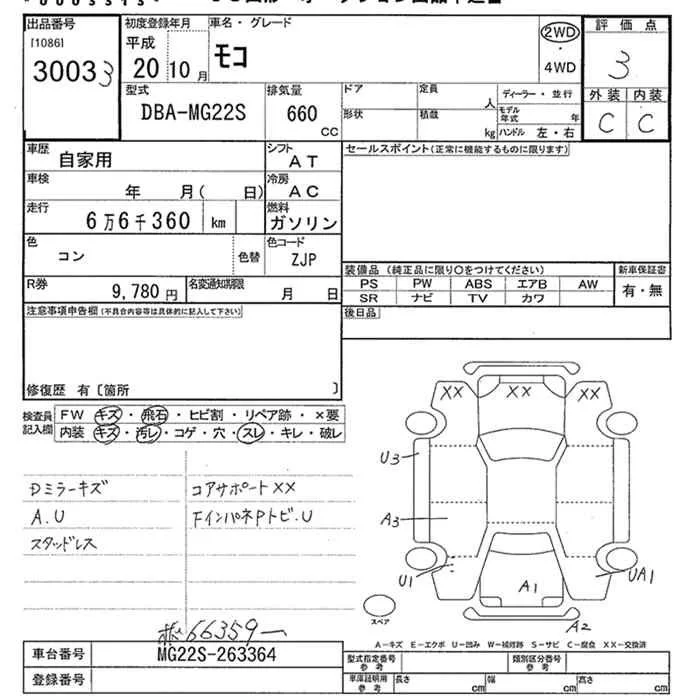 出品番号
[1086]
30033
初度登録年月
平成
20 10 月
車名・グレード
モコ
2WD
・
4WD
評価点
3
外装 内装
C C
型式
DBA-MG22S
排気量
660
CC
ドア
定員
人
ディーラー・並行
形状
積載
kg
モデル年式
年
ハンドル 左・右
車歴
自家用
シフト
AT
セールスポイント(正常に機能するものに限ります)
車検
年 月( 日)
冷房
AC
走行
6万6千360 km
燃料
ガソリン
色
コン
色替
色コード
ZJP
装備品 (純正品に限り○をつけてください)
新車保証書
PS PW ABS エアB AW
SR ナビ TV カワ
有・無
R券
9,780 円
名変通知期限
月 日
後日品
注意事項申告欄(不具合内容等は具体的に記入して下さい)
修復歴 有〔箇所 〕
検査員記入欄
FW キズ・飛石・ヒビ割・リペア跡・×要
内装 キズ・汚レ・コゲ・穴・スレ・キレ・破レ
Dミラーキズ
A.U
スタッドレス
コアサポートXX
FインパネPトビ.U
XX XX XX
U3
A3
U1
A1
UA1
A2
スペア
A-キズ E-エクボ U-凹み W-補修跡 S-サビ C-腐食 XX-交換済
66359
車台番号
MG22S-263364
登録番号
型式指定番号参考
類別区分番号参考
車庫証明用参考
長さ cm
幅 cm
高さ cm